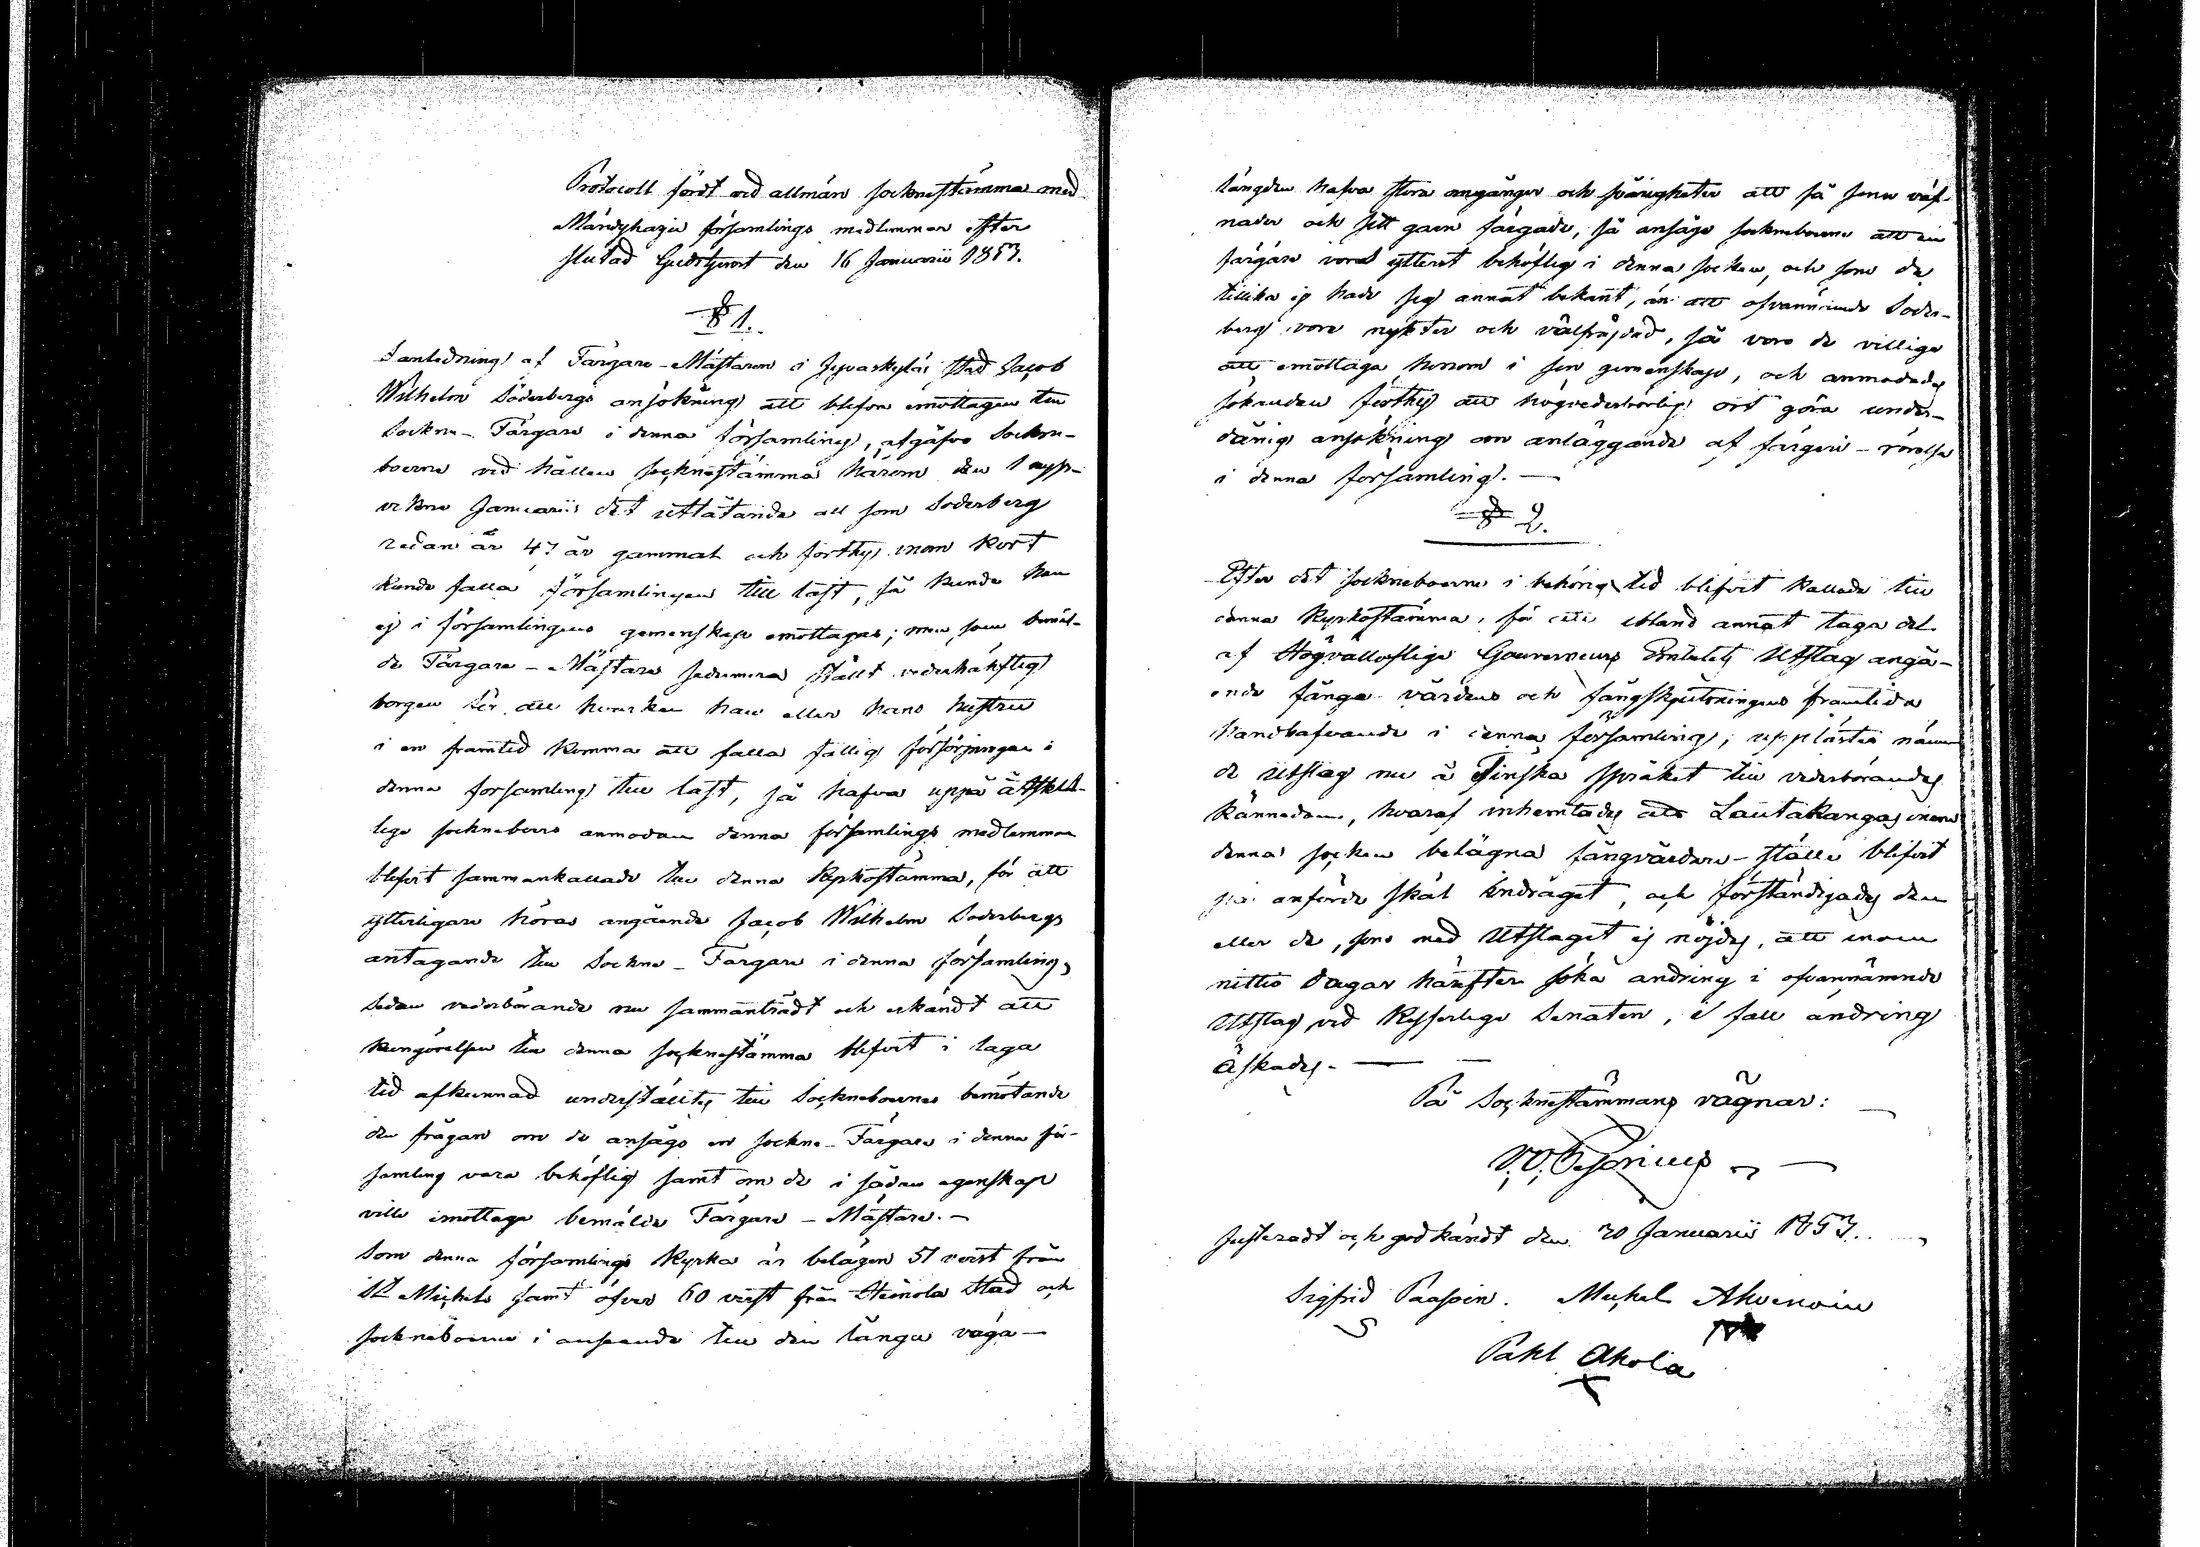 Protocoll fördt vid allmän socknestämma med
Mändyharju församlings medlemmar efter
slutad Gudstjenst den 16 Januarii 1853.
§ 1.
I anledning af Färgare-Mästaren i Jyvaskylä Stad Jacob
Wilhelm Söderbergs ansökning att blifva emottagen till
Sockne-Färgare i denna församling, afgåfvo Sockne-
boerne vid hållen socknestämma härom den 1 nyss-
vekne Januarii det utlåtande att som Söderberg
redan är 47 år gammal och förthy inom kort
kunde falla församlingen till last, så kunde han
ej i församlingens gemenskap emottagas; men som bemäl-
de Färgare-Mästare sedermera stält vederhäftig
borgen för att hvarken han eller hans hustru
i en framtid komma att falla fattig försörjningen i
denna församling till last, så hafva uppå åtskil-
lige sockneboers anmodan denna församlings medlemmar
blifvit sammankallade till denna kyrkostämma, för att
ytterligare höras angående Jacob Wilhelm Söderbergs
antagande till Sockne-Färgare i denna församling,
sedan vederbörande nu sammanträdt och erkändt att
kungörelsen till denna socknestämma blifvit i laga
tid afkunnad underställtes till Socknebornes bemötande
den frågan om de ansågo en sockne-Färgare i denna för-
samling vara behöflig samt om de i sådan egenskap
ville emottaga bemälde Färgare-Mästare.-
Som denna församlings Kyrka är belägen 51 verst från
St Michels samt öfver 60 verst från Heinola Stad och
socknëboerne i anseende till den långa väga-
längden hafva stora omgånger och svårigheter att få sina väf-
nader och sitt garn färgade, så ansågo socknebourne att en
färgare vore ytterst behöflig i denna socken, och som de
tillika ej hade sig annat bekant, än att ofvannämnde Söder-
berg vore nykter och välfräjdad, så voro de villige
att emottaga honom i sin gemenskap, och anmodades
sökanden förthy att högvederbörlig ort göra under-
dånig ansökning om anläggande af färgeri-rörelse
i denna församling. -
§ 2.
Efter det socknebourne i behörig tid blifvit kallade till
denna Kyrkostämma, för att ibland annat taga del
af Högvällofliga Gouverneurs Embetets Utslag angå-
ende fånge-vårdens och fångskjutsningens framtida
handhafvande i denna församling; upplästes nämn-
de Utslag nu å Finska språket till vederbörandes
kännedom, hvaraf inhemtades att Lautakangas inom
denna socken belägna fångvårdare-ställe blifvit
på anförde skäl indraget, och förständigades den
eller de, som med Utslaget ej nöjdes, att inom
nittio dagar härefter söka ändring i ofvannämnde
Utslag vid Kejserliga Senaten, i fall ändring
äskades. -
På Socknestämmans vägnar:
Justeradt och godkändt den 30 Januarii 1853.
Sigfrid Paasoin. Michel Ahvenain
Pahl Ahola